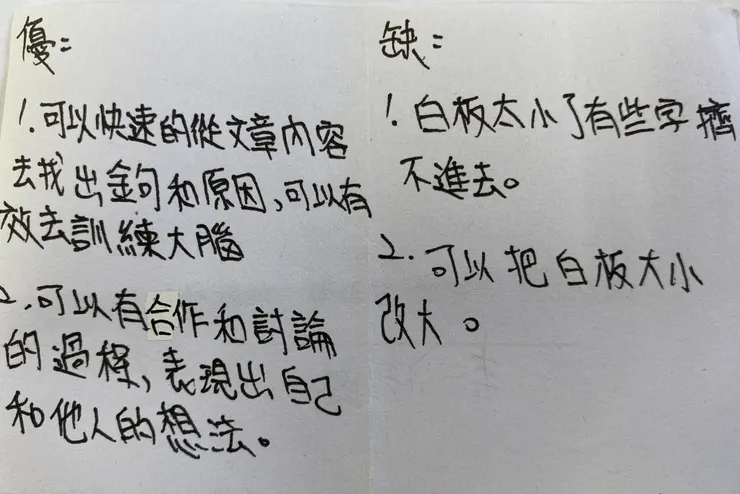 優：
1.可以快速的從文章內容
去找出金句和原因,可以有
效去訓練大腦
2.可以有合作和討論
的過程,表現出自己
和他人的想法。
缺：
1.白板太小了有些字擠
不進去。
2.可以把白板大小
改大。